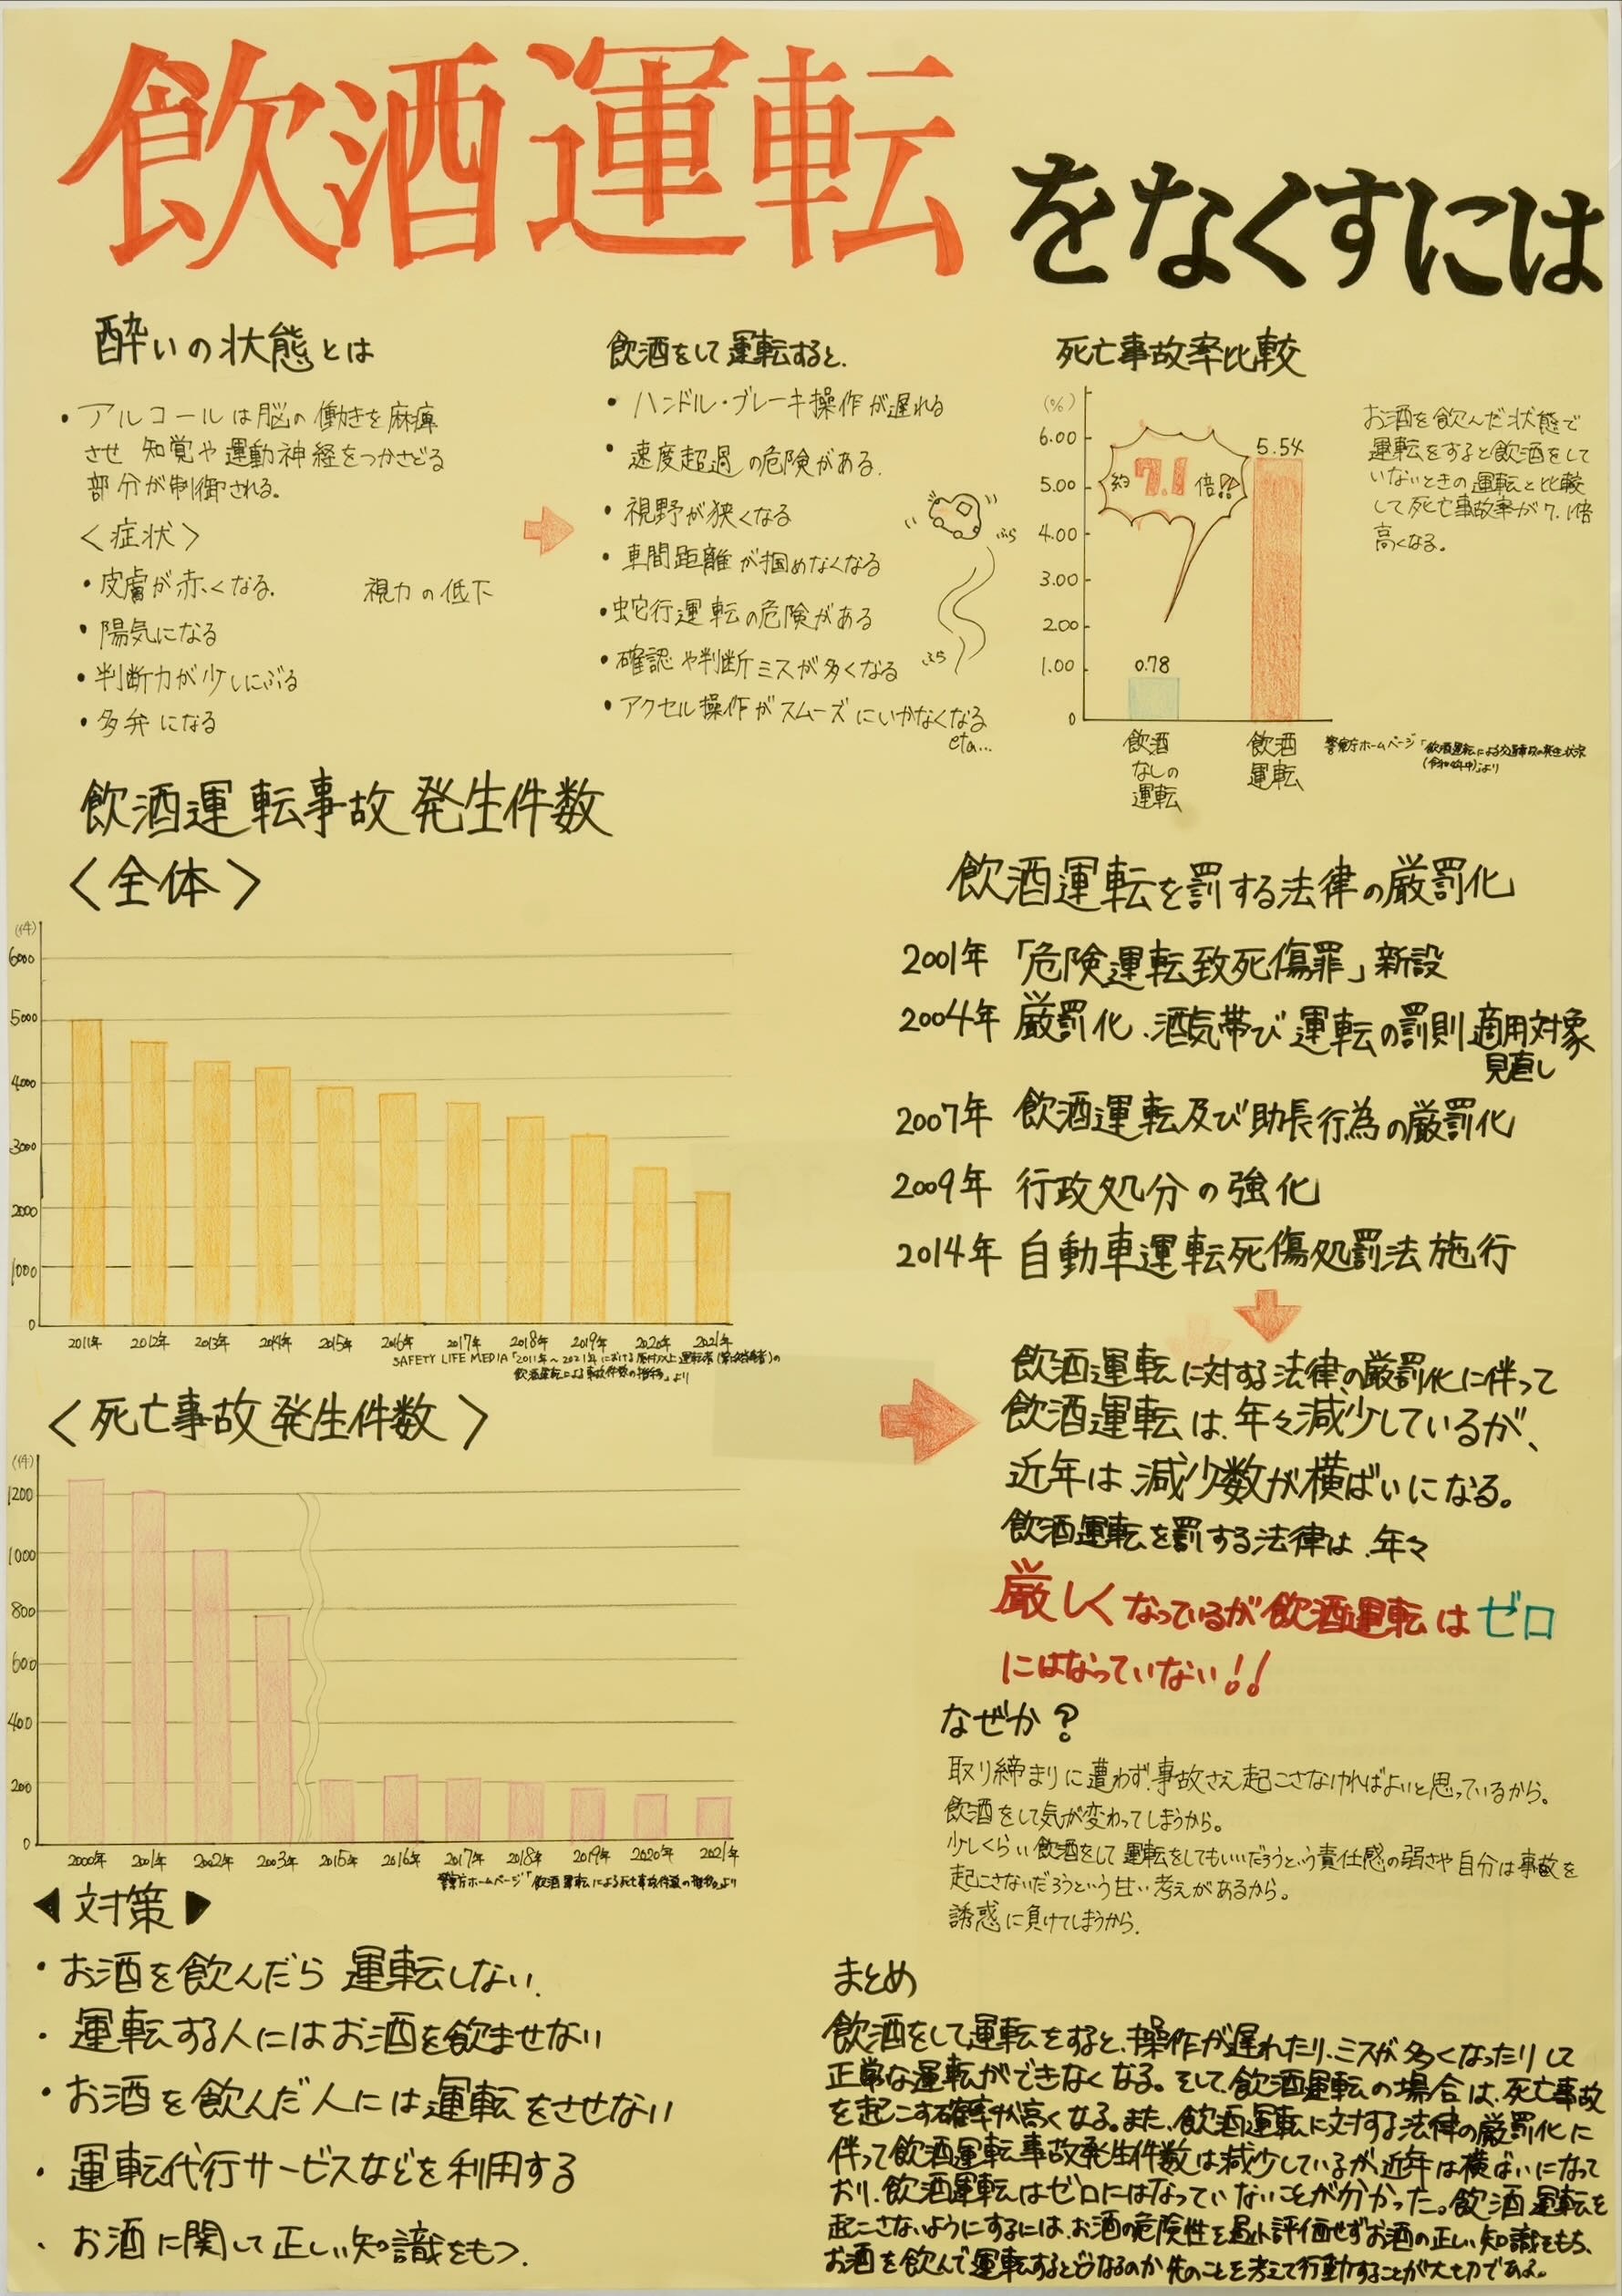 飲酒運転をなくすには
酔いの状態とは
・アルコールは脳の働きを麻痺
させ 知覚や運動神経をつかさどる
部分が制御される。
〈症状〉
・皮膚が赤くなる。 視力の低下
・陽気になる
・判断力が少しにぶる
・多弁になる
飲酒をして運転すると、
・ハンドル・ブレーキ操作が遅れる
・速度超過の危険がある。
・視野が狭くなる
・車間距離が掴めなくなる
・蛇行運転の危険がある
・確認や判断ミスが多くなる
・アクセル操作がスムーズにいかなくなる
eta...
ふら
ふら
死亡事故率比較
(%)
6.00
5.00
4.00
3.00
2.00
1.00
0
約7.1倍!!
5.54
0.78
飲酒
なしの
運転
飲酒
運転
お酒を飲んだ状態で
運転をすると飲酒をして
いないときの運転と比較
して死亡事故率が7.1倍
高くなる。
警察庁ホームページ「飲酒運転による交通事故の発生状況
より
飲酒運転事故発生件数
〈全体〉
(件)
6000
5000
4000
3000
2000
1000
0
2011年 2012年 2013年 2014年 2015年 2016年 2017年 2018年 2019年 2020年 2021年
SAFETY LIFE MEDIA「2011年〜2021年における原付以上運転者(第1当事者)の
飲酒運転による事故件数の推移」より
〈死亡事故発生件数〉
(件)
1200
1000
800
600
400
200
0
2000年 2001年 2002年 2003年 2015年 2016年 2017年 2018年 2019年 2020年 2021年
警察庁ホームページ「飲酒運転による死亡事故件数の推移」より
飲酒運転を罰する法律の厳罰化
2001年 「危険運転致死傷罪」新設
2004年 厳罰化、酒気帯び運転の罰則適用対象
見直し
2007年 飲酒運転及び助長行為の厳罰化
2009年 行政処分の強化
2014年 自動車運転死傷処罰法施行
飲酒運転に対する法律の厳罰化に伴って
飲酒運転は、年々減少しているが、
近年は減少数が横ばいになる。
飲酒運転を罰する法律は、年々
厳しくなっているが飲酒運転はゼロ
にはなっていない!!
なぜか?
取り締まりに遭わず、事故さえ起こさなければよいと思っているから。
飲酒をして気が変わってしまうから。
少しくらい飲酒をして運転をしてもいいだろうという責任感の弱さや自分は事故を
起こさないだろうという甘い考えがあるから。
誘惑に負けてしまうから。
◀対策▶
・お酒を飲んだら運転しない。
・運転する人にはお酒を飲ませない
・お酒を飲んだ人には運転をさせない
・運転代行サービスなどを利用する
・お酒に関して正しい知識をもつ。
まとめ
飲酒をして運転をすると、操作が遅れたり、ミスが多くなったりして
正常な運転ができなくなる。そして、飲酒運転の場合は、死亡事故
を起こす確率が高くなる。また、飲酒運転に対する法律の厳罰化に
伴って飲酒運転事故発生件数は減少しているが、近年は横ばいになって
おり、飲酒運転はゼロにはなっていないことが分かった。飲酒運転を
起こさないようにするには、お酒の危険性を過小評価せずお酒の正しい知識をもち、
お酒を飲んで運転するとどうなるのか先のことを考えて行動することが大切である。